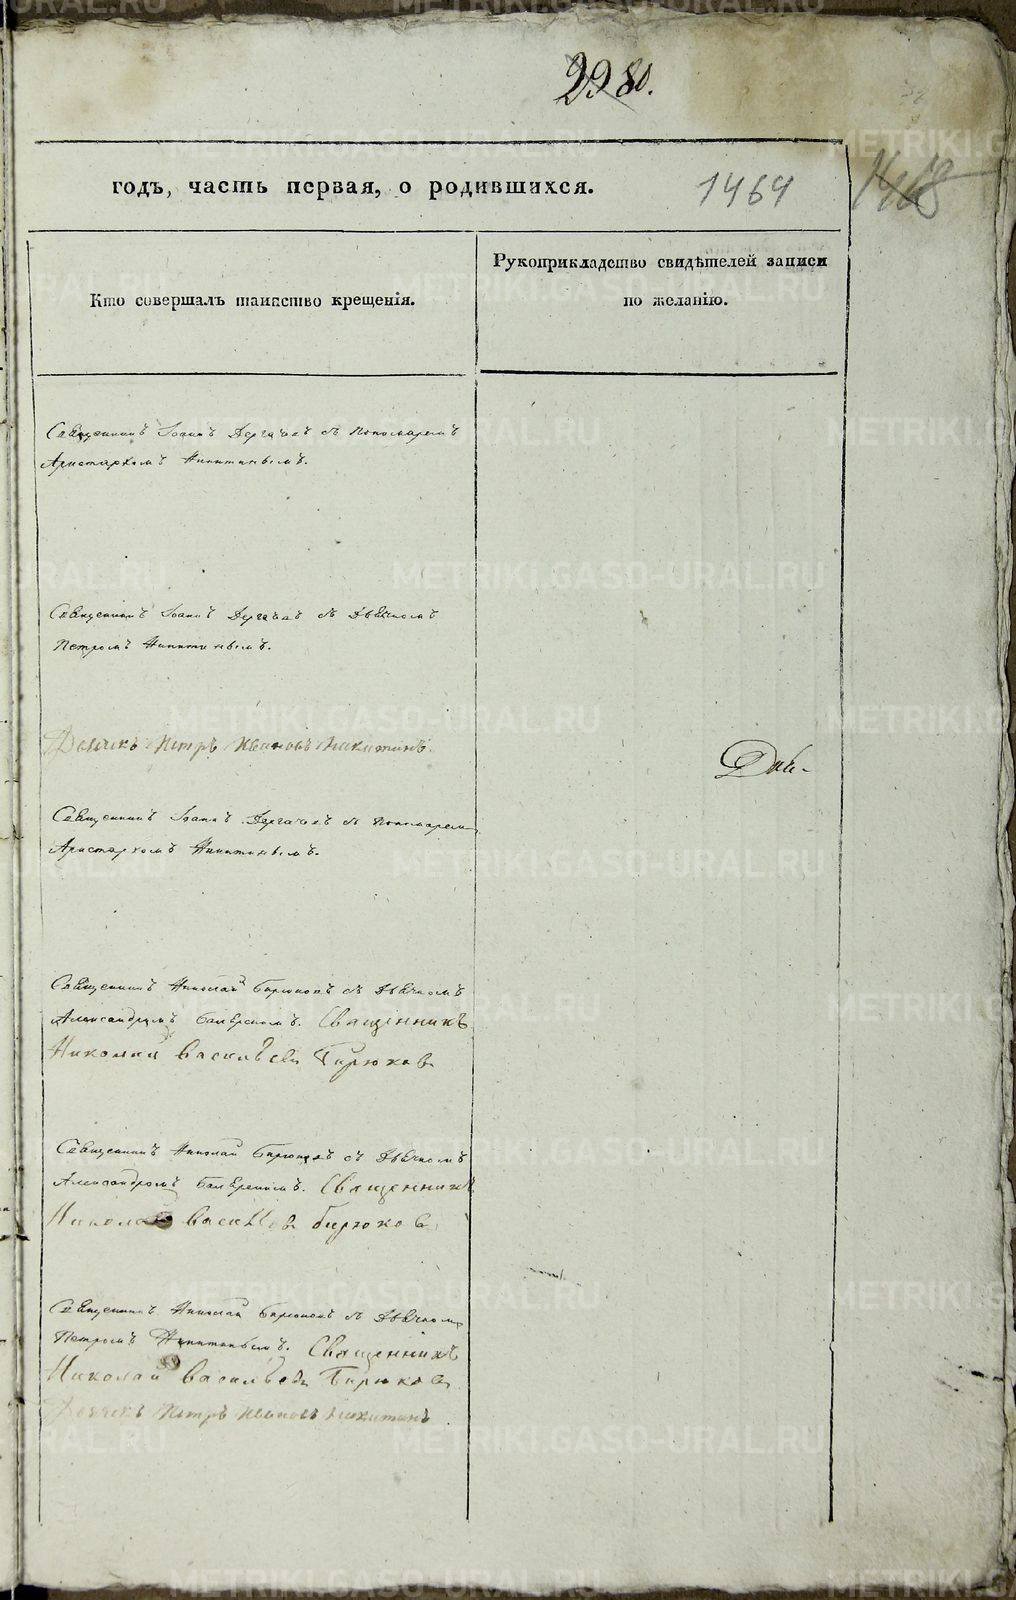 годъ, часть первая, о родившихся.
1464
1468
Кто совершалъ таинство крещенія.
Рукоприкладство свидѣтелей записи
по желанію.
Священникъ Іоаннъ Дергачевъ съ Пономаремъ
Аристархомъ Никитинымъ.
Священникъ Іоаннъ Дергачевъ съ Дьячкомъ
Петромъ Никитинымъ.
Дьячекъ Петръ Ивановъ Никитинъ
Священникъ Іоаннъ Дергачевъ съ Пономарем
Аристархомъ Никитинымъ.
Священникъ Николай Бирюковъ съ Дьячкомъ
Александромъ Священникъ
Николай Васильевъ Бирюков
Священникъ Николай Бирюковъ съ Дьячкомъ
Александромъ Священникъ
Николай Бирюков
Священникъ Николай Бирюковъ съ Дьячком
Петромъ Никитинымъ. Священникъ
Николай Васильевъ Бирюков
Дьячекъ Петръ Ивановъ Никитинъ
METRIKI.GASO-URAL.RU